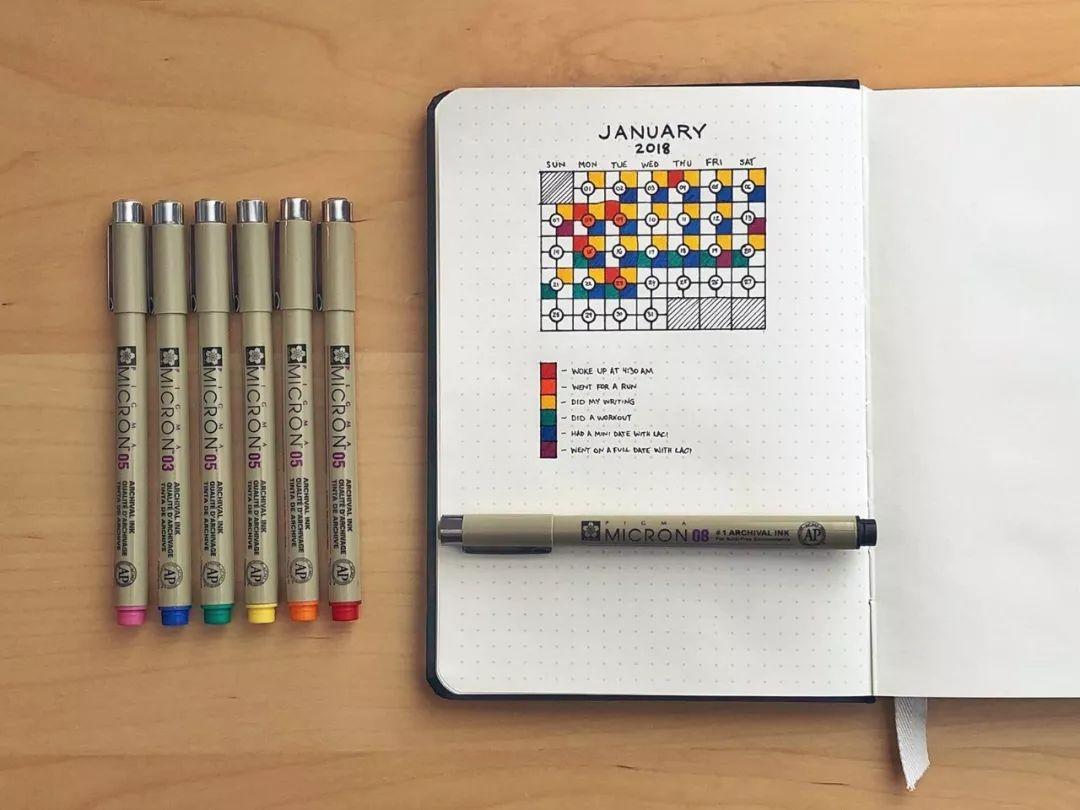 JANUARY
2018
SUN MON TUE WED THU FRI SAT
01 02 03 04 05 06
07 08 09 10 11 12 13
14 15 16 17 18 19 20
21 22 23 24 25 26 27
28 29 30 31
WOKE UP AT 4:30 AM
WENT FOR A RUN
DID MY WRITING
DID A WORKOUT
HAD A MINI DATE WITH LACI
WENT ON A FULL DATE WITH LACI
PIGMA
MICRON 08 #1 ARCHIVAL INK
AP
PIGMA
MICRON 05
ARCHIVAL INK
QUALITÉ D'ARCHIVAGE
TINTA DE ARCHIVE
AP
PIGMA
MICRON 03
ARCHIVAL INK
QUALITÉ D'ARCHIVAGE
TINTA DE ARCHIVE
AP
PIGMA
MICRON 05
ARCHIVAL INK
QUALITÉ D'ARCHIVAGE
TINTA DE ARCHIVE
AP
PIGMA
MICRON 05
ARCHIVAL INK
QUALITÉ D'ARCHIVAGE
TINTA DE ARCHIVE
AP
PIGMA
MICRON 05
ARCHIVAL INK
QUALITÉ D'ARCHIVAGE
TINTA DE ARCHIVE
AP
PIGMA
MICRON 05
ARCHIVAL INK
QUALITÉ D'ARCHIVAGE
TINTA DE ARCHIVE
AP